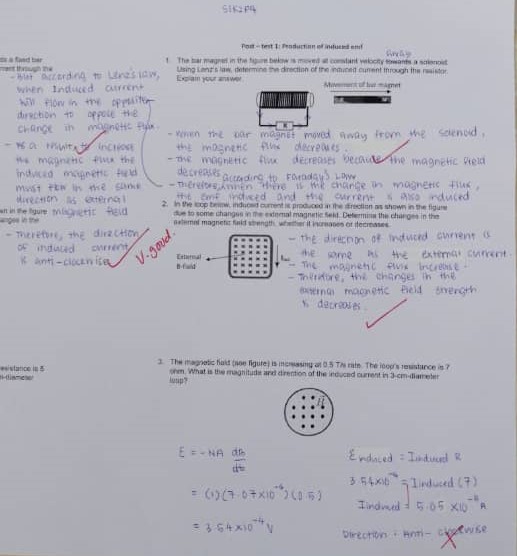 S1K2P4
Post – test 1: Production of induced emf
away
1. The bar magnet in the figure below is moved at constant velocity towards a solenoid.
Using Lenz's law, determine the direction of the induced current through the resistor.
Explain your answer.
Movement of bar magnet
R
- When the bar magnet moved away from the solenoid,
the magnetic flux decreases.
- The magnetic flux decreases because the magnetic field
decreases
according to Faraday's Law
- Therefore, when there is the change in magnetic flux,
the emf induced and the current is also induced
- But according to Lenz's law,
when induced current
will flow in the opposite
direction to oppose the
change in magnetic flux.
- As a result, to increase
the magnetic flux the
induced magnetic field
must flow in the same
direction as external
magnetic field
- Therefore, the direction
of induced current
is anti-clockwise
V. good
ds a fixed bar
rrent through the
en in the figure
anges in the
2. In the loop below, induced current is produced in the direction as shown in the figure
due to some changes in the external magnetic field. Determine the changes in the
external magnetic field strength, whether it increases or decreases.
External
B-field
- The direction of induced current is
the same as the external current.
- The magnetic flux increase.
- Therefore, the changes in the
external magnetic field strength
is decreases.
3. The magnetic field (see figure) is increasing at 0.5 T/s rate. The loop's resistance is 7
ohm. What is the magnitude and direction of the induced current in 3-cm-diameter
loop?
esistance is 5
n-diameter
E = - NA dB
dt
= (1)(7.07×10⁻⁴)(0.5)
= 3.54×10⁻⁴ V
Einduced = Iinduced R
3.54×10⁻⁴ = Iinduced (7)
Iinduced = 5.05 ×10⁻⁵ A
Direction : Anti-clockwise